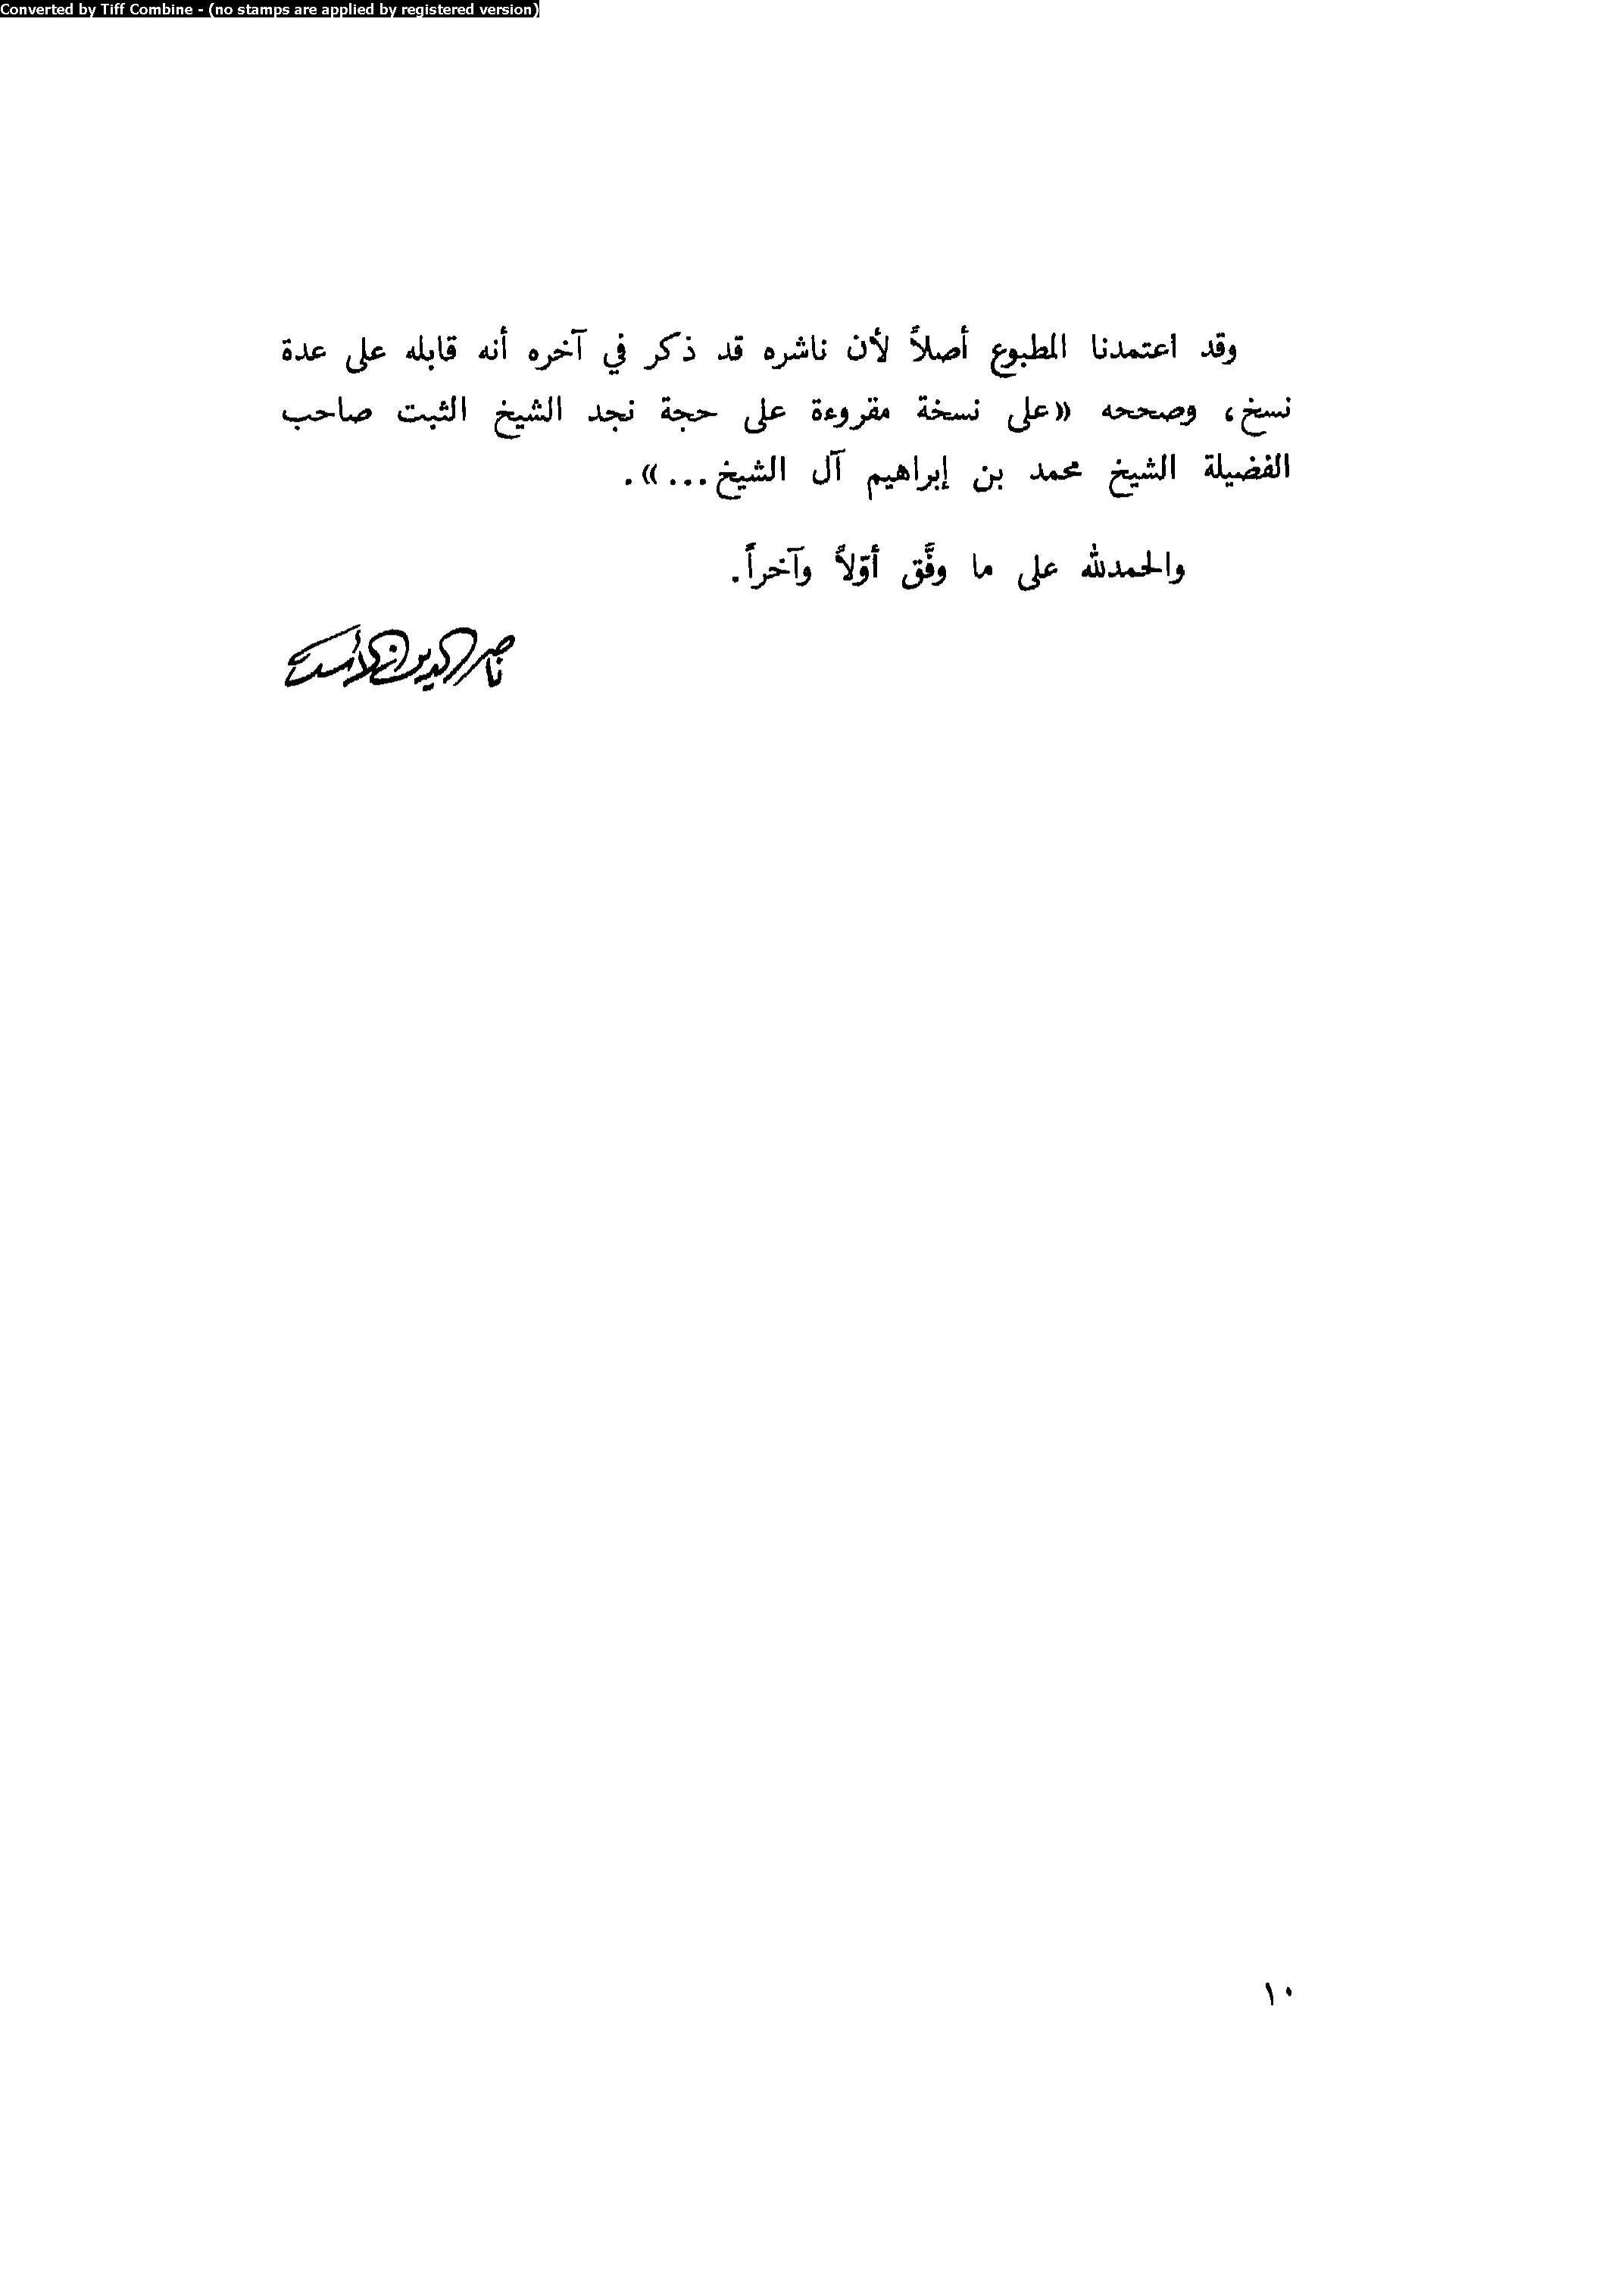 Converted by Tiff Combine - (no stamps are applied by registered version)
وقد اعتمدنا المطبوع أصلاً لأن ناشره قد ذكر في آخره أنه قابله على عدة
نسخ، وصححه «على نسخة مقروءة على حجة نجد الشيخ الثبت صاحب
الفضيلة الشيخ محمد بن إبراهيم آل الشيخ...».
والحمدلله على ما وفَّق أوّلاً وآخراً.
ناصر الدين الأسد
١٠